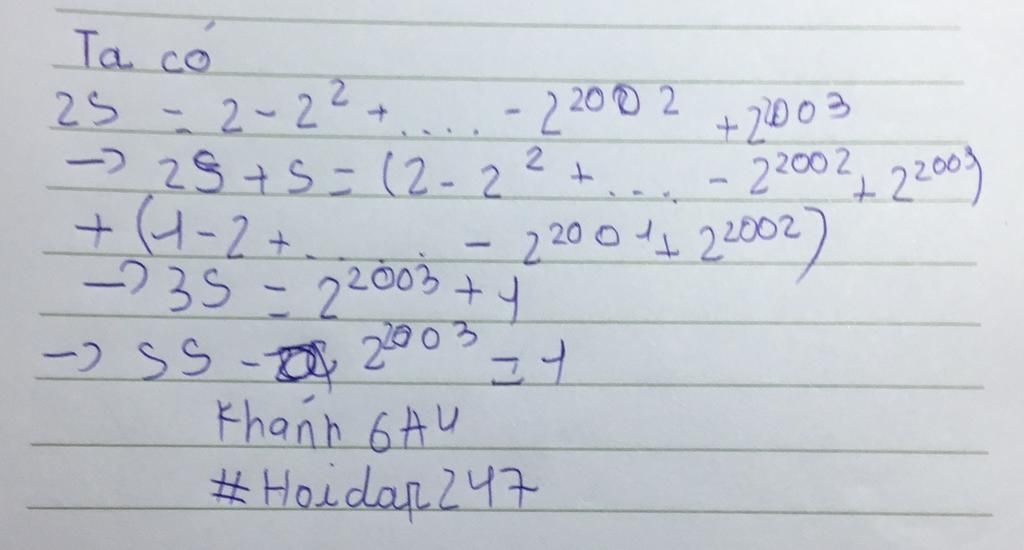 Ta có
2S = 2 - 2² + .... - 2²⁰⁰² + 2²⁰⁰³
→ 2S + S = (2 - 2² + .... - 2²⁰⁰² + 2²⁰⁰³)
+ (1 - 2 + ...... - 2²⁰⁰¹ + 2²⁰⁰²)
→ 3S = 2²⁰⁰³ + 1
→ 3S - 2²⁰⁰³ = 1
Khánh 6A4
#Hoidap247